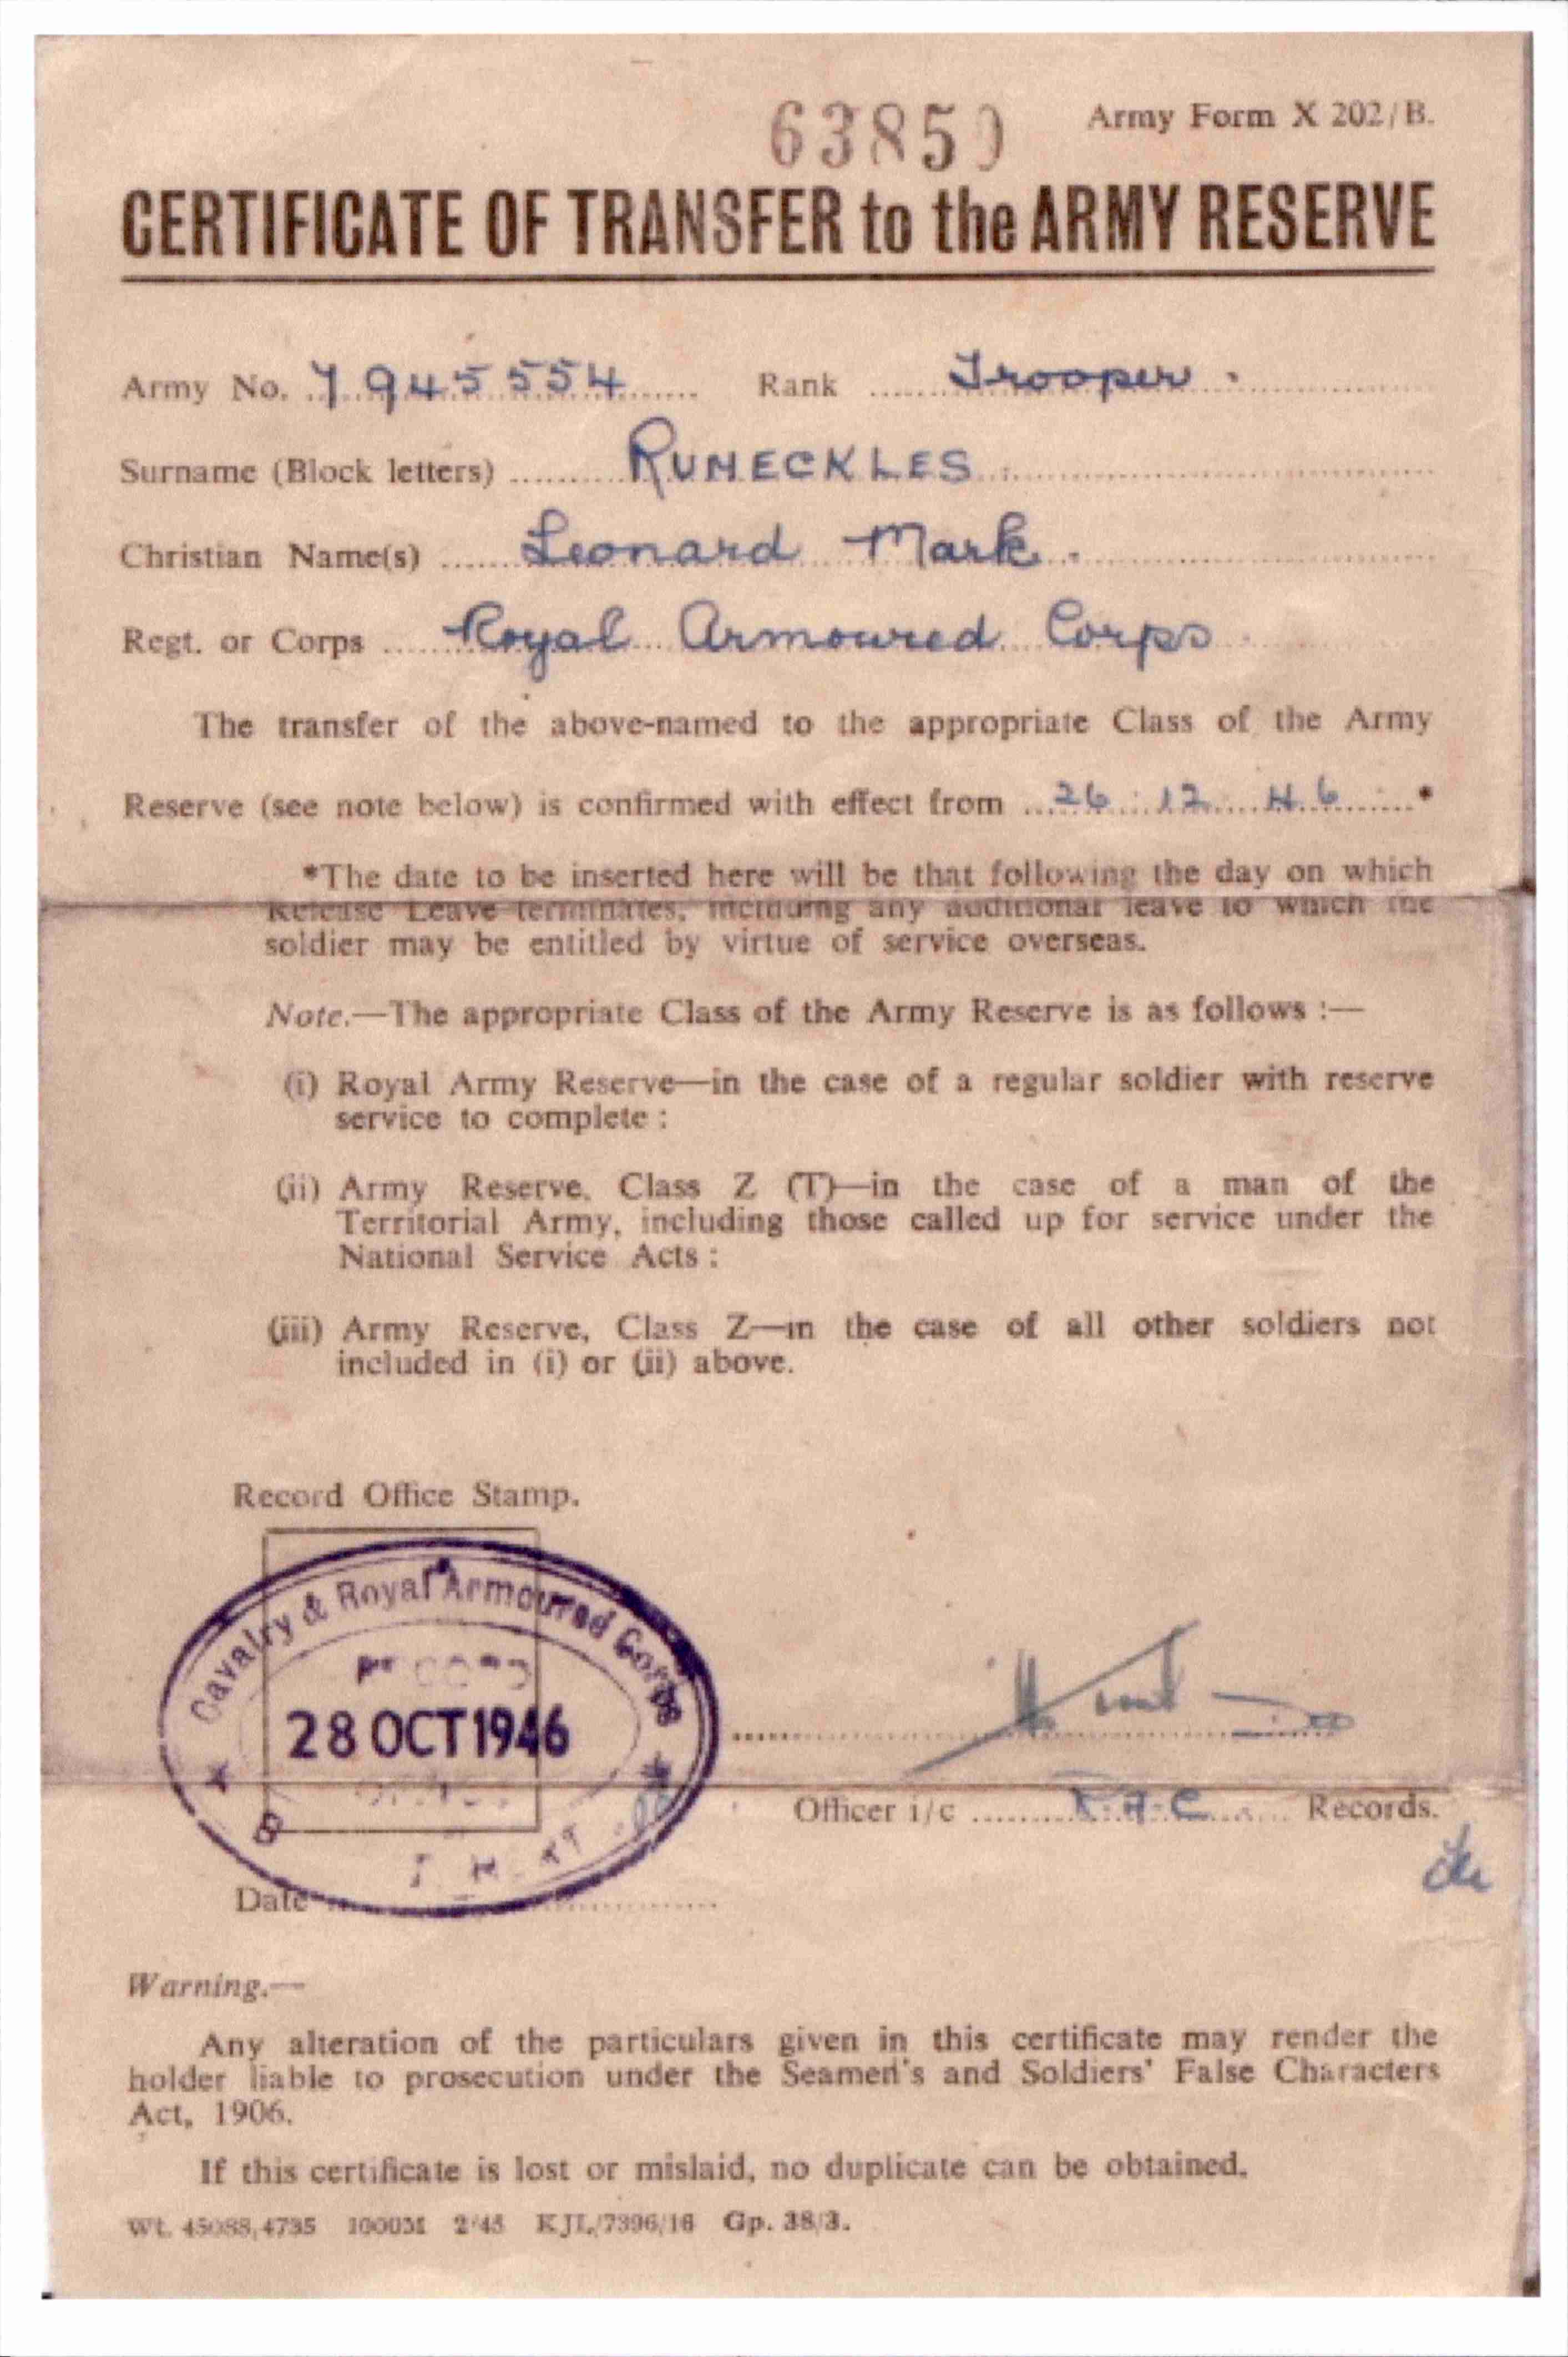 63850
Army Form X 202/B.
CERTIFICATE OF TRANSFER to the ARMY RESERVE
Army No. 7945554 Rank Trooper.
Surname (Block letters) RUNECKLES
Christian Name(s) Leonard Mark.
Regt. or Corps Royal Armoured Corps
The transfer of the above-named to the appropriate Class of the Army
Reserve (see note below) is confirmed with effect from 26 : 12 46 *
*The date to be inserted here will be that following the day on which
Release Leave terminates, including any additional leave to which the
soldier may be entitled by virtue of service overseas.
Note.—The appropriate Class of the Army Reserve is as follows :—
(i) Royal Army Reserve—in the case of a regular soldier with reserve
service to complete :
(ii) Army Reserve, Class Z (T)—in the case of a man of the
Territorial Army, including those called up for service under the
National Service Acts :
(iii) Army Reserve, Class Z—in the case of all other soldiers not
included in (i) or (ii) above.
Record Office Stamp.
Cavalry & Royal Armoured Corps
28 OCT 1946
Officer i/c R.A.C. Records.
Date
Warning.—
Any alteration of the particulars given in this certificate may render the
holder liable to prosecution under the Seamen's and Soldiers' False Characters
Act, 1906.
If this certificate is lost or mislaid, no duplicate can be obtained.
Wt. 45088/4735 1000M 2/45 KJL/7396/16 Gp. 38/3.